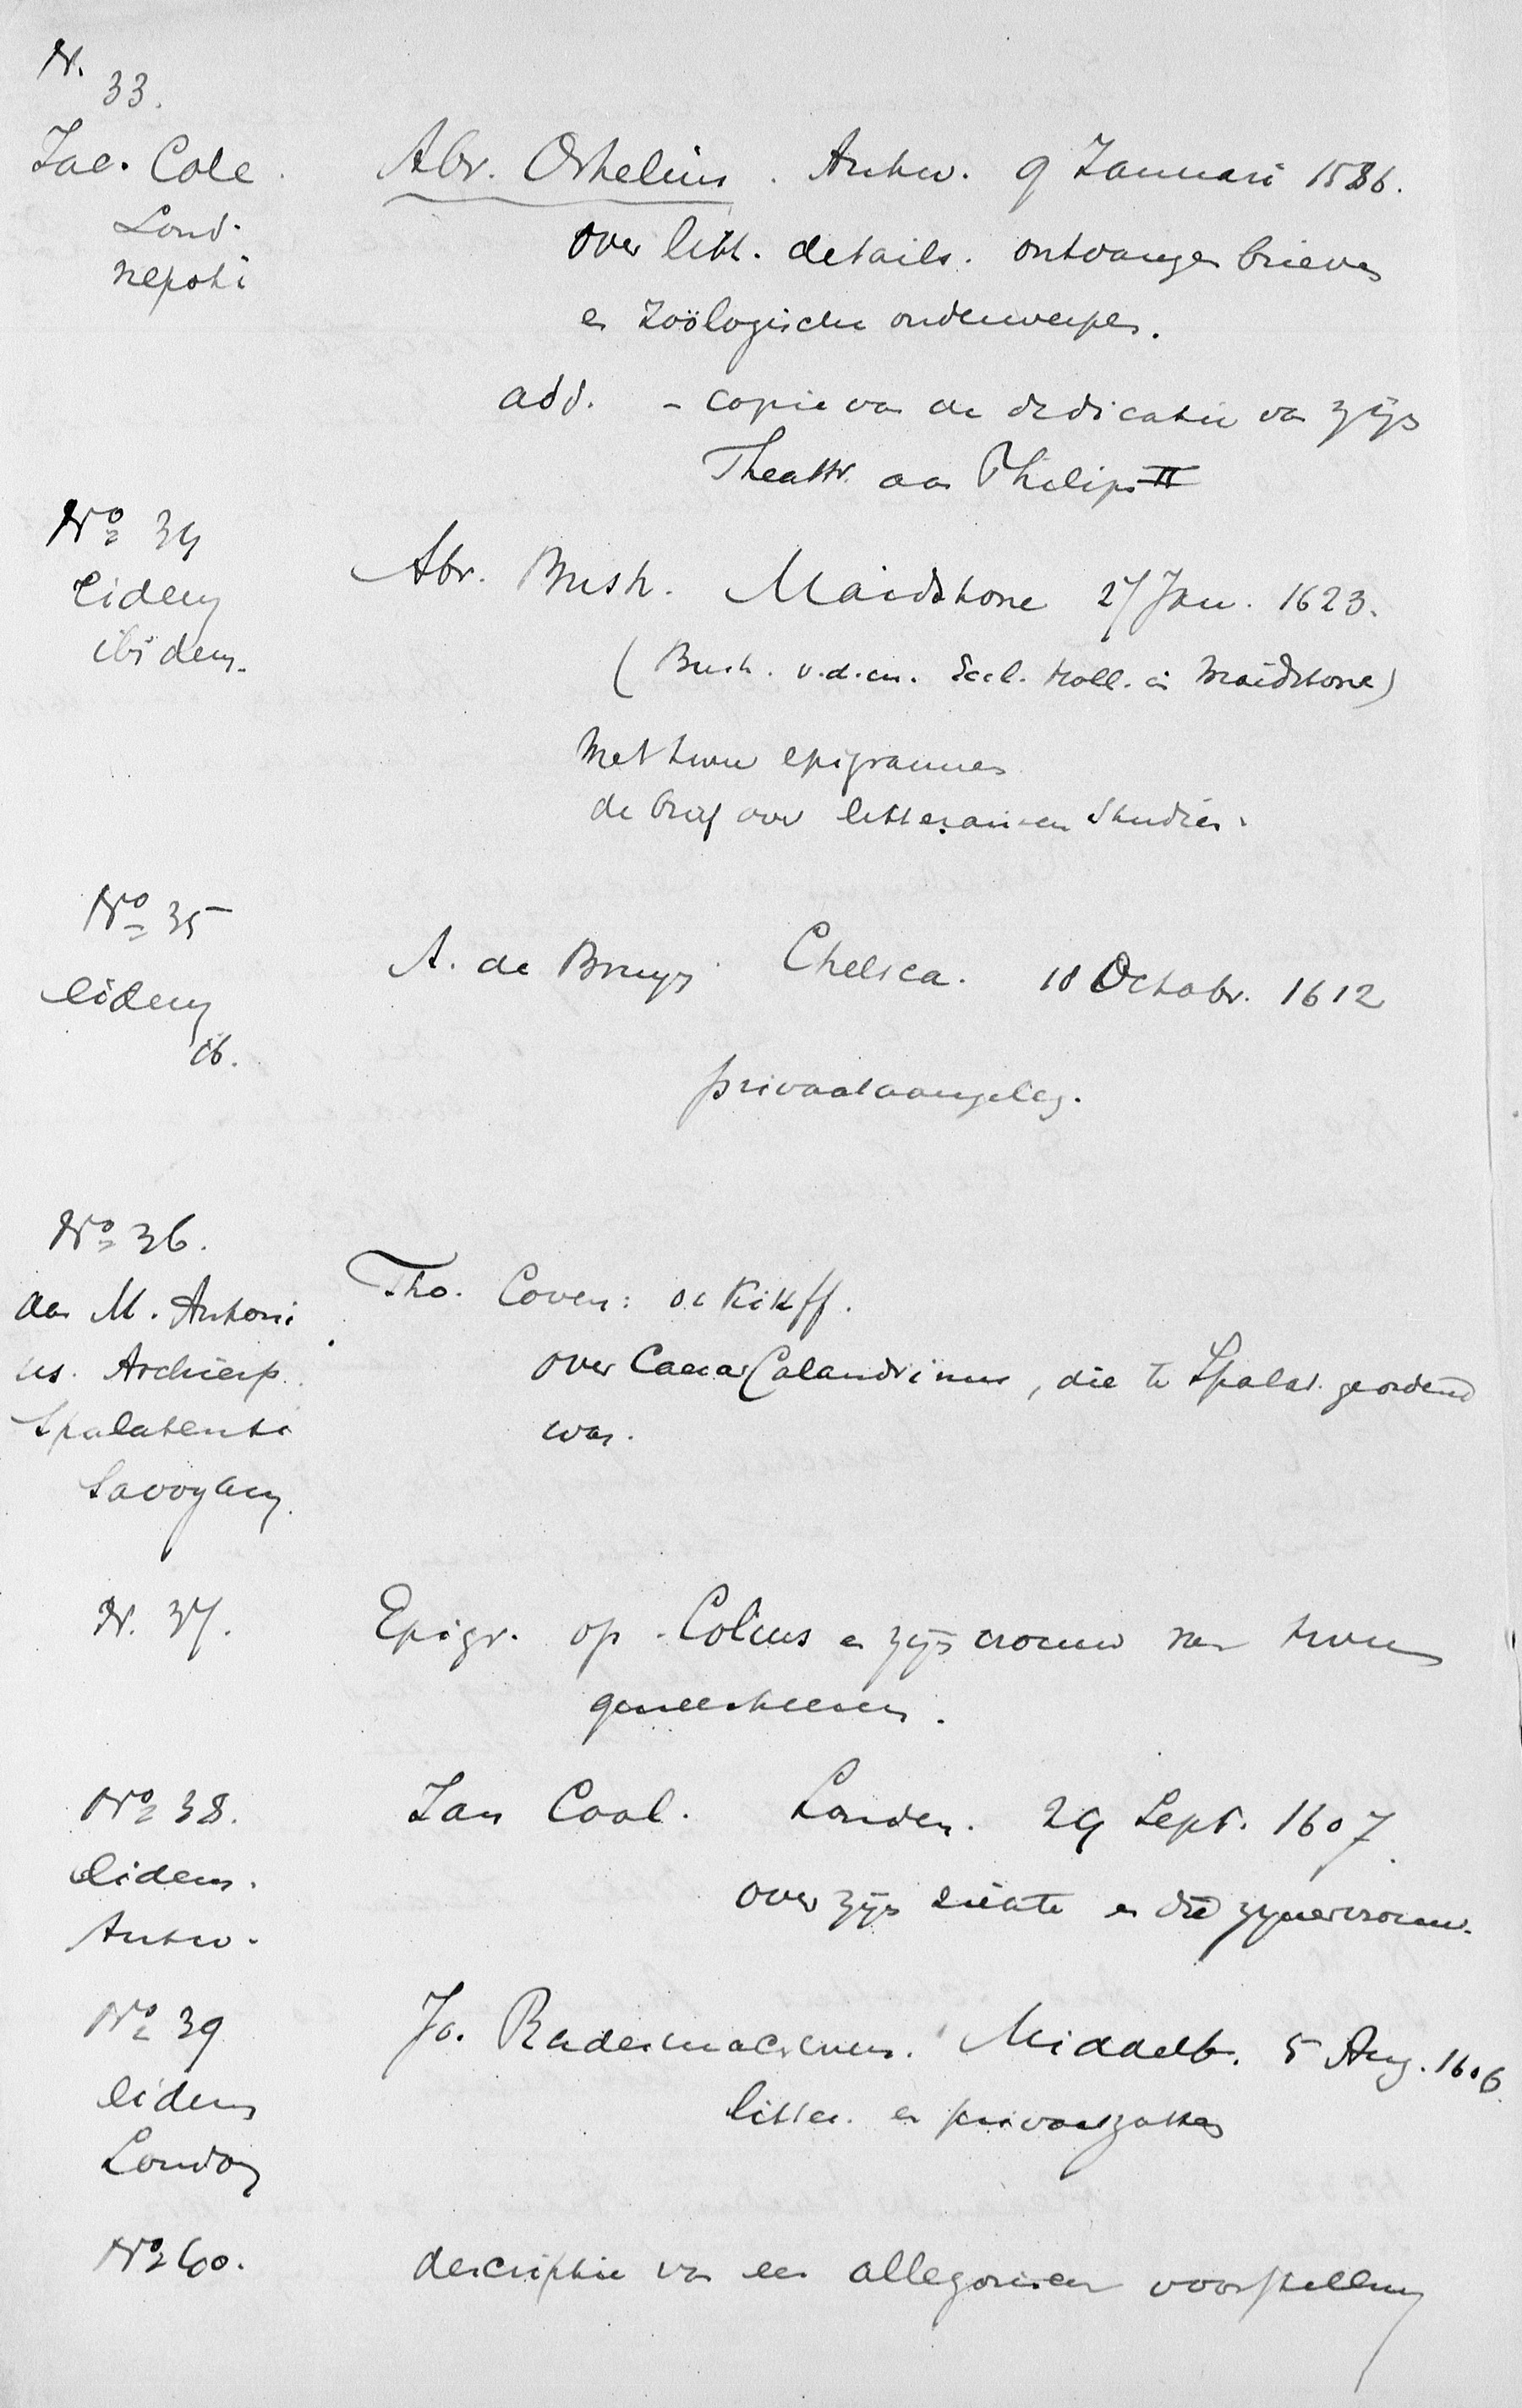 N. 33.
Jac. Cole.
Lond.
nepoti
Abr. Orthelius. Antw. 9 Januari 1586.
over litt. details. ontvangen brieven
en zoölogische onderwerpen.
add. - copie van de dedicatie van zijn
Theatr. aan Philips II
No 34
Eidem
ibidem.
Abr. Bush. Maidstone 27 Jan. 1623.
(Bush. v.d.m. Eccl. Holl. in Maidstone)
Met twee epigrammen
de brief over litteraire en studien.
No 35
eidem
ib.
A. de Bruyn Chelsea. 18 Octobr. 1612
privaataangeleg.
No 36.
aan M. Antoni
us. Archiep.
Spalatensi
Savoyam.
Tho. Coven:
over Caesar Calandrinus, die te Spalat. geordend
was.
N. 37.
Epigr. op Colius en zijn vrouw van twee
geneesheeren.
No 38.
eidem.
Antw.
Jan Cool. Londen. 29 Sept. 1607.
over zijn ziekte en die zijner vrouw.
No 39
eidem
London
Jo. Radermacherus. Middelb. 5 Aug. 1606.
litter. en privaatzaken
No 40.
descriptie van een allegorische voorstelling